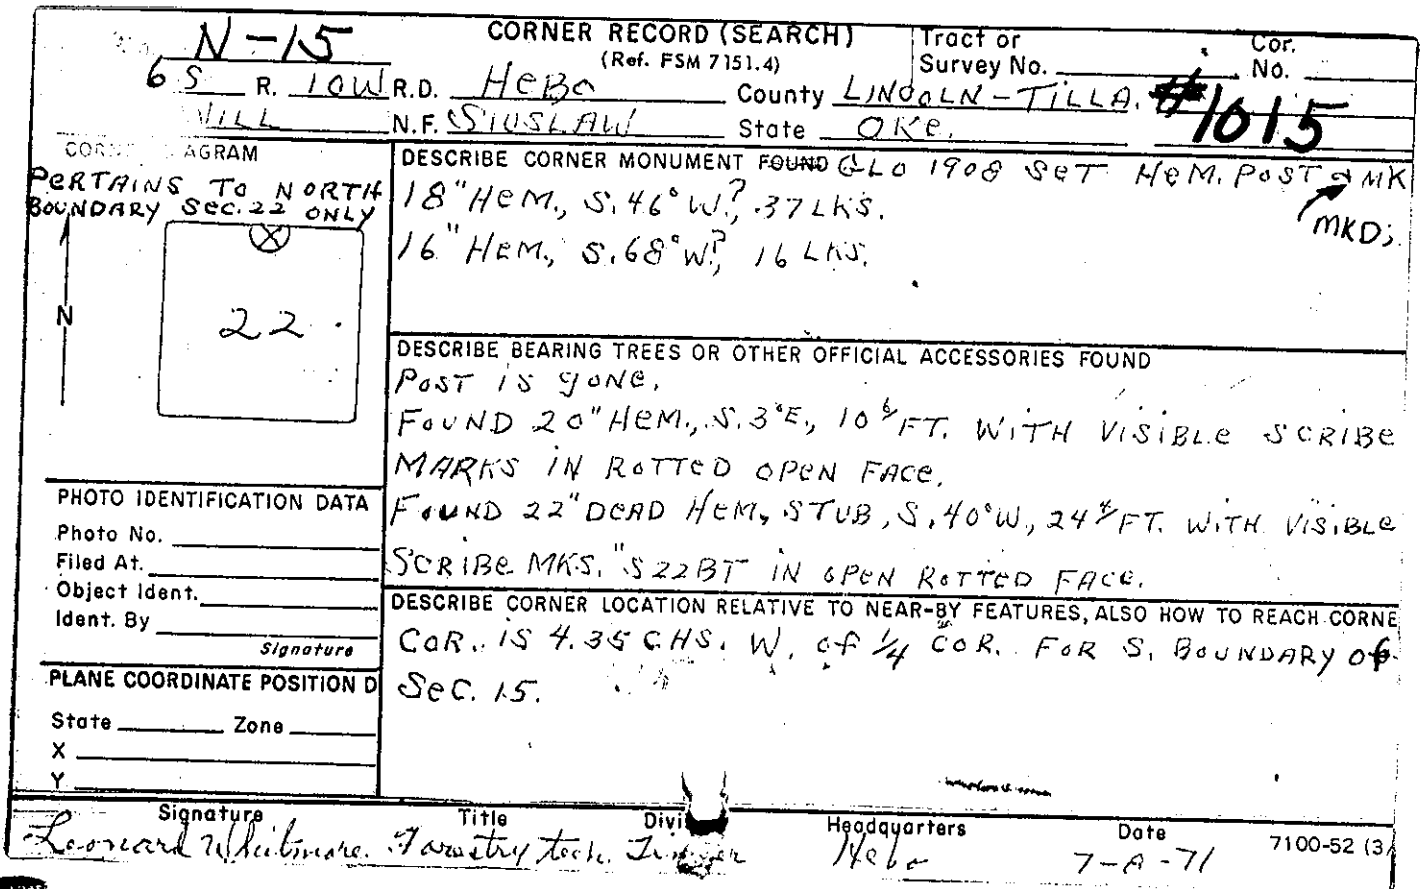 N-15 CORNER RECORD (SEARCH) Tract or Cor.
(Ref. FSM 7151.4) Survey No. No.
6 S R. 10W R.D. HeBo County LINCOLN-TILLA. #1015
WILL N.F. SIUSLAW State ORe.
AGRAM
PeRTAINS TO NORTH
BOUNDARY Sec. 22 ONLY
N
22
DESCRIBE CORNER MONUMENT FOUND GLO 1908 SeT HeM. PosT & MK
MKD;
18" HeM., S. 46° W.?, 37 LKS.
16" HeM., S. 68° W.?, 16 LKS.
DESCRIBE BEARING TREES OR OTHER OFFICIAL ACCESSORIES FOUND
PosT is goNe.
FouND 20" HeM., S. 3°E., 10 6/ FT. WiTH VisiBLe SCRIBe
MARKS iN RoTTeD oPeN FAce.
FouND 22" DeAD HeM, STUB, S. 40°W., 24 4/ FT. WiTH VisiBLe
SCRiBe MKS. "S22BT iN oPeN RoTTeD FACe.
PHOTO IDENTIFICATION DATA
Photo No.
Filed At.
Object Ident.
Ident. By
Signature
DESCRIBE CORNER LOCATION RELATIVE TO NEAR-BY FEATURES, ALSO HOW TO REACH CORNE
CoR. iS 4.35 CHS. W. of 1/4 CoR. FoR S. BoUNDARY of
SeC. 15.
PLANE COORDINATE POSITION D
State Zone
X
Y
Signature Title Divi Headquarters Date 7100-52 (3/
Leonard Whitmore Forestry tech. Timber Hebo 7-8-71